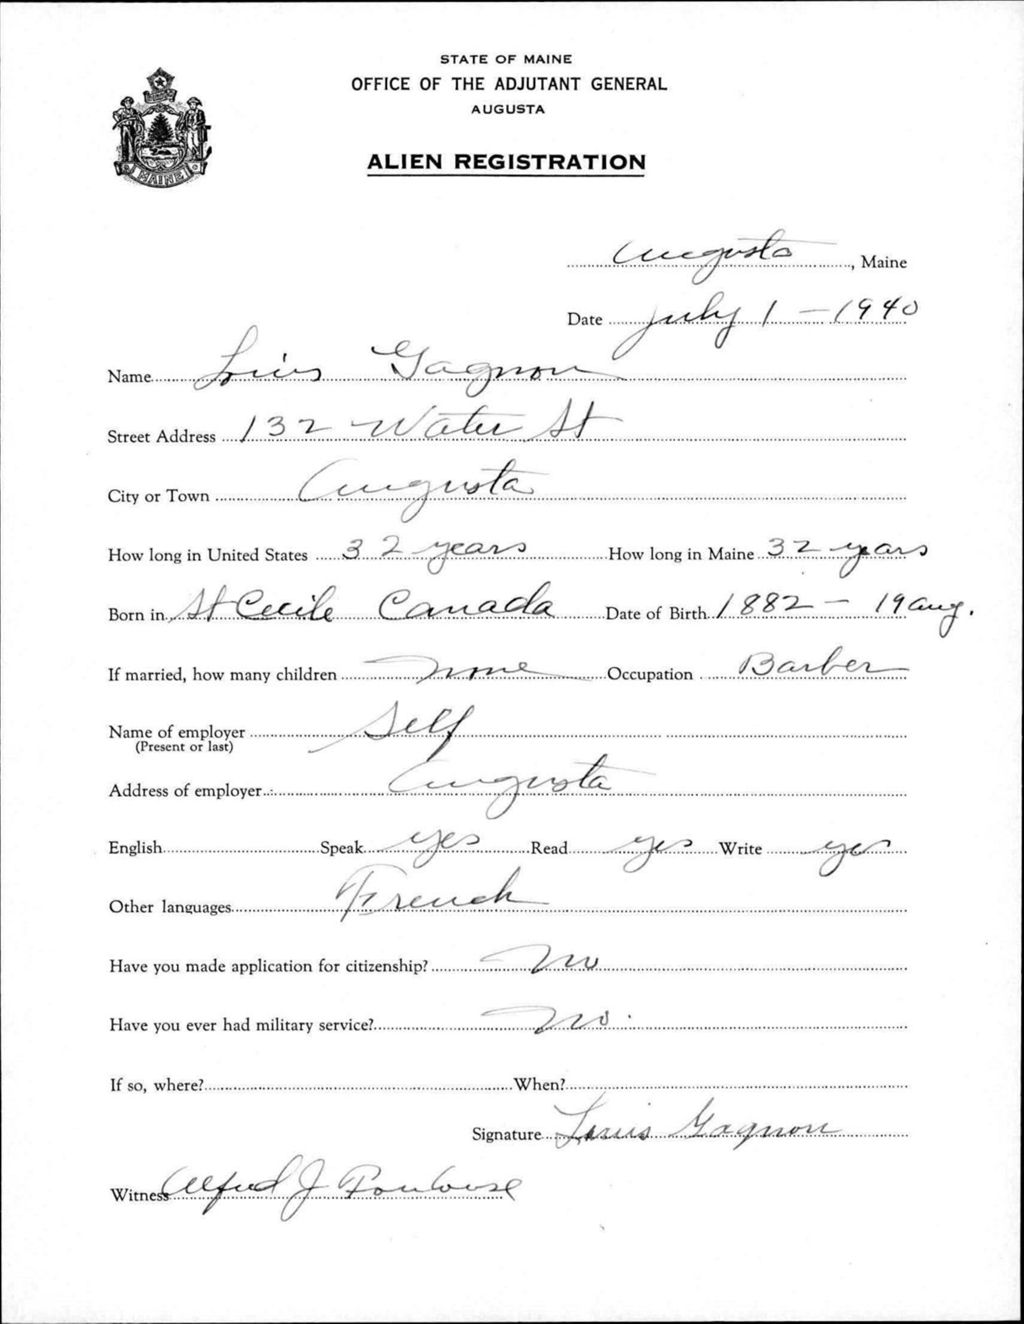 STATE OF MAINE
OFFICE OF THE ADJUTANT GENERAL
AUGUSTA
ALIEN REGISTRATION
MAINE
Augusta, Maine
Date July 1 - 1940
Name Louis Gagnon
Street Address 132 Water St
City or Town Augusta
How long in United States 32 years How long in Maine 32 years
Born in St Cecile Canada Date of Birth 1882 - 19 Aug.
If married, how many children none Occupation Barber
Name of employer Self
(Present or last)
Address of employer Augusta
English Speak yes Read yes Write yes
Other languages French
Have you made application for citizenship? No
Have you ever had military service? No.
If so, where? When?
Signature Louis Gagnon
Witness Alfred J